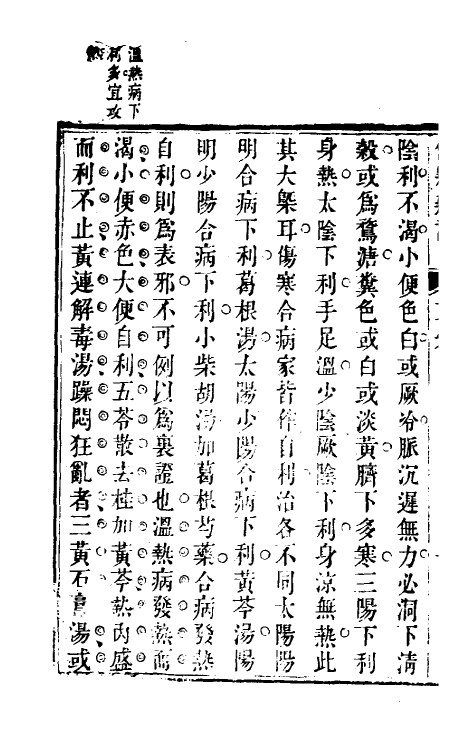 溫熱病下
利多宜攻
熱
陰利不渴小便色白或厥冷脈沉遲無力必洞下清
穀或爲鶩溏糞色或白或淡黃臍下多寒三陽下利
身熱太陰下利手足溫少陰厥陰下利身涼無熱此
其大槩耳傷寒合病家皆作自利治各不同太陽陽
明合病下利葛根湯太陽少陽合病下利黃芩湯陽
明少陽合病下利小柴胡湯加葛根芍藥合病發熱
自利則爲表邪不可例以爲裏證也溫熱病發熱而
渴小便赤色大便自利五苓散去桂加黃芩熱內盛
而利不止黃連解毒湯躁悶狂亂者三黃石湯或